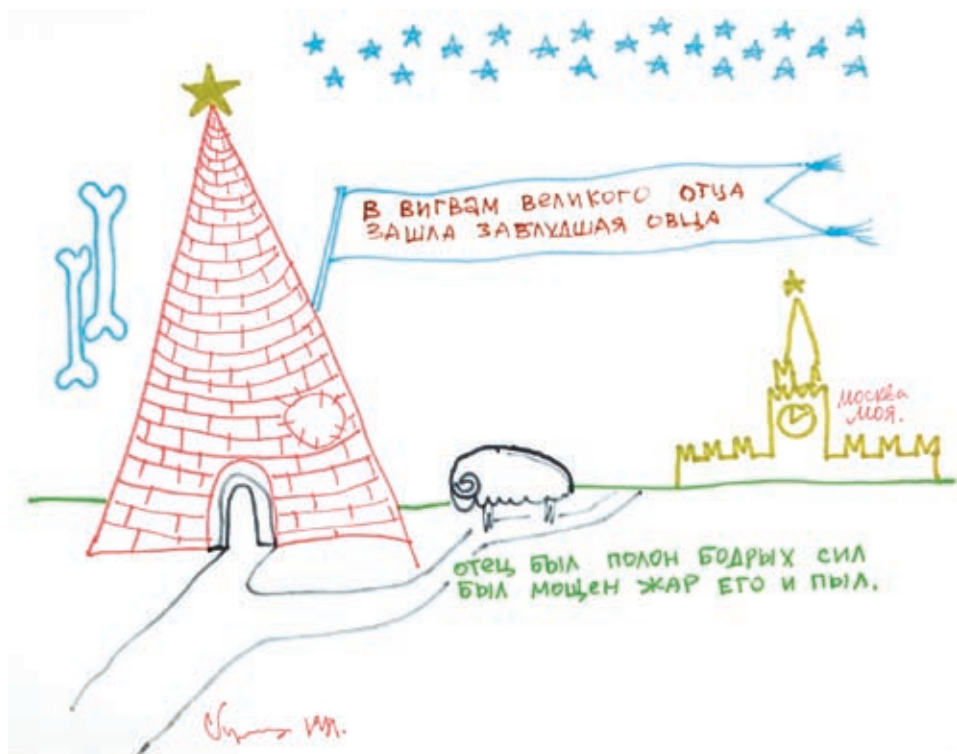 В ВИГВАМ ВЕЛИКОГО ОТЦА
ЗАШЛА ЗАБЛУДШАЯ ОВЦА
МОСКВА
МОЯ.
ОТЕЦ БЫЛ ПОЛОН БОДРЫХ СИЛ
БЫЛ МОЩЕН ЖАР ЕГО И ПЫЛ.